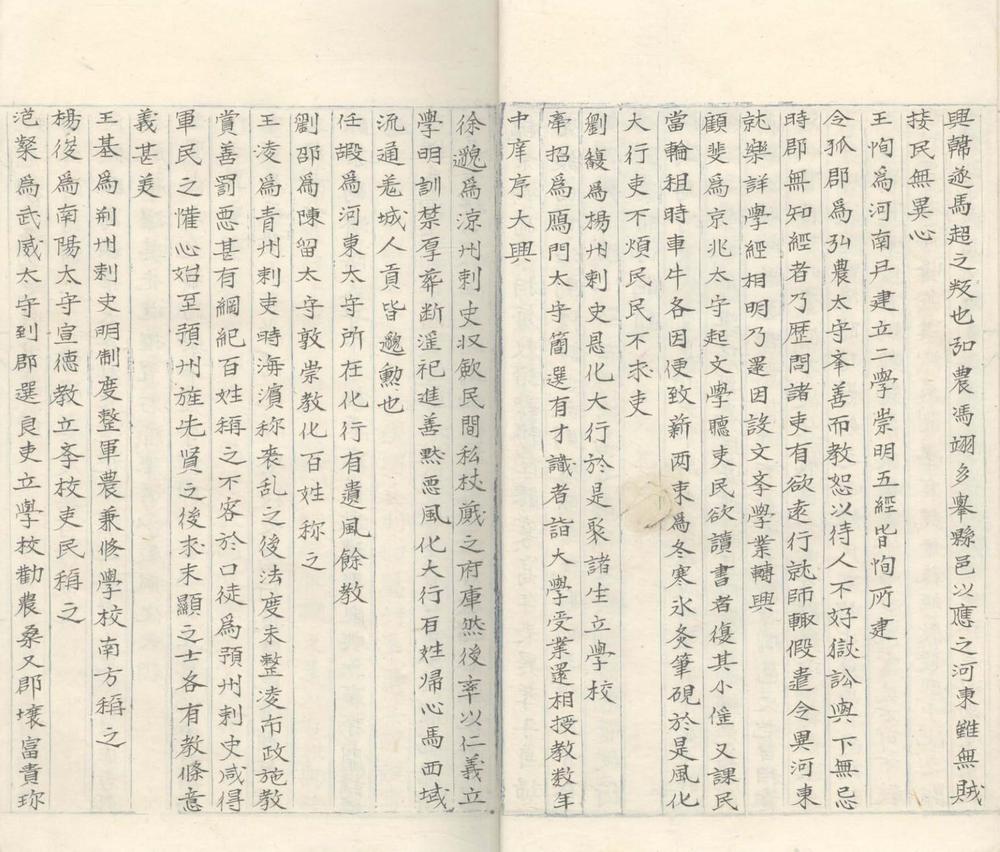 興韓遂馬超之叛也弘農馮翊多舉縣邑以應之河東雖無賊
接民無異心
王恂為河南尹建立二學崇明五經皆恂所建
令狐郡為弘農太守奉善而教恕以待人不好獄訟與下無忌
時郡無知經者乃歷問諸吏有欲遠行就師輙假遣令異河東
就樂詳學經相明乃還因設文斈學業轉興
顧斐為京兆太守起文學聽吏民欲讀書者復其小傜又課民
當輪租時車牛各因便致薪两束為冬寒氷炙筆硯於是風化
大行吏不煩民民不求吏
劉馥為楊州刺史恩化大行於是聚諸生立學校
牽招為鴈門太守簡選有才識者詣大學受業還相授教数年
中庠序大興
徐邈為涼州刺史収歛民間私杖蔵之府庫然後率以仁義立
學明訓禁厚葬断滛祀進善黙惡風化大行百姓帰心焉西域
流通羗城人貢皆邈勲也
任嘏為河東太守所在化行有遺風餘教
劉邵為陳留太守敦崇教化百姓称之
王凌為青州刺吏時海濱称丧乱之後法度未整凌布政施教
賞善罰惡甚有綱紀百姓稱之不容於口徒為預州刺史咸得
軍民之懽心始至預州旌先賢之後求未顯之士各有教條意
義甚美
王基為荊州刺史明制度整軍農兼修學校南方稱之
楊俊為南陽太守宣德教立斈校吏民稱之
范粲為武威太守到郡選良吏立學校勸農桑又郡壌富貴珎